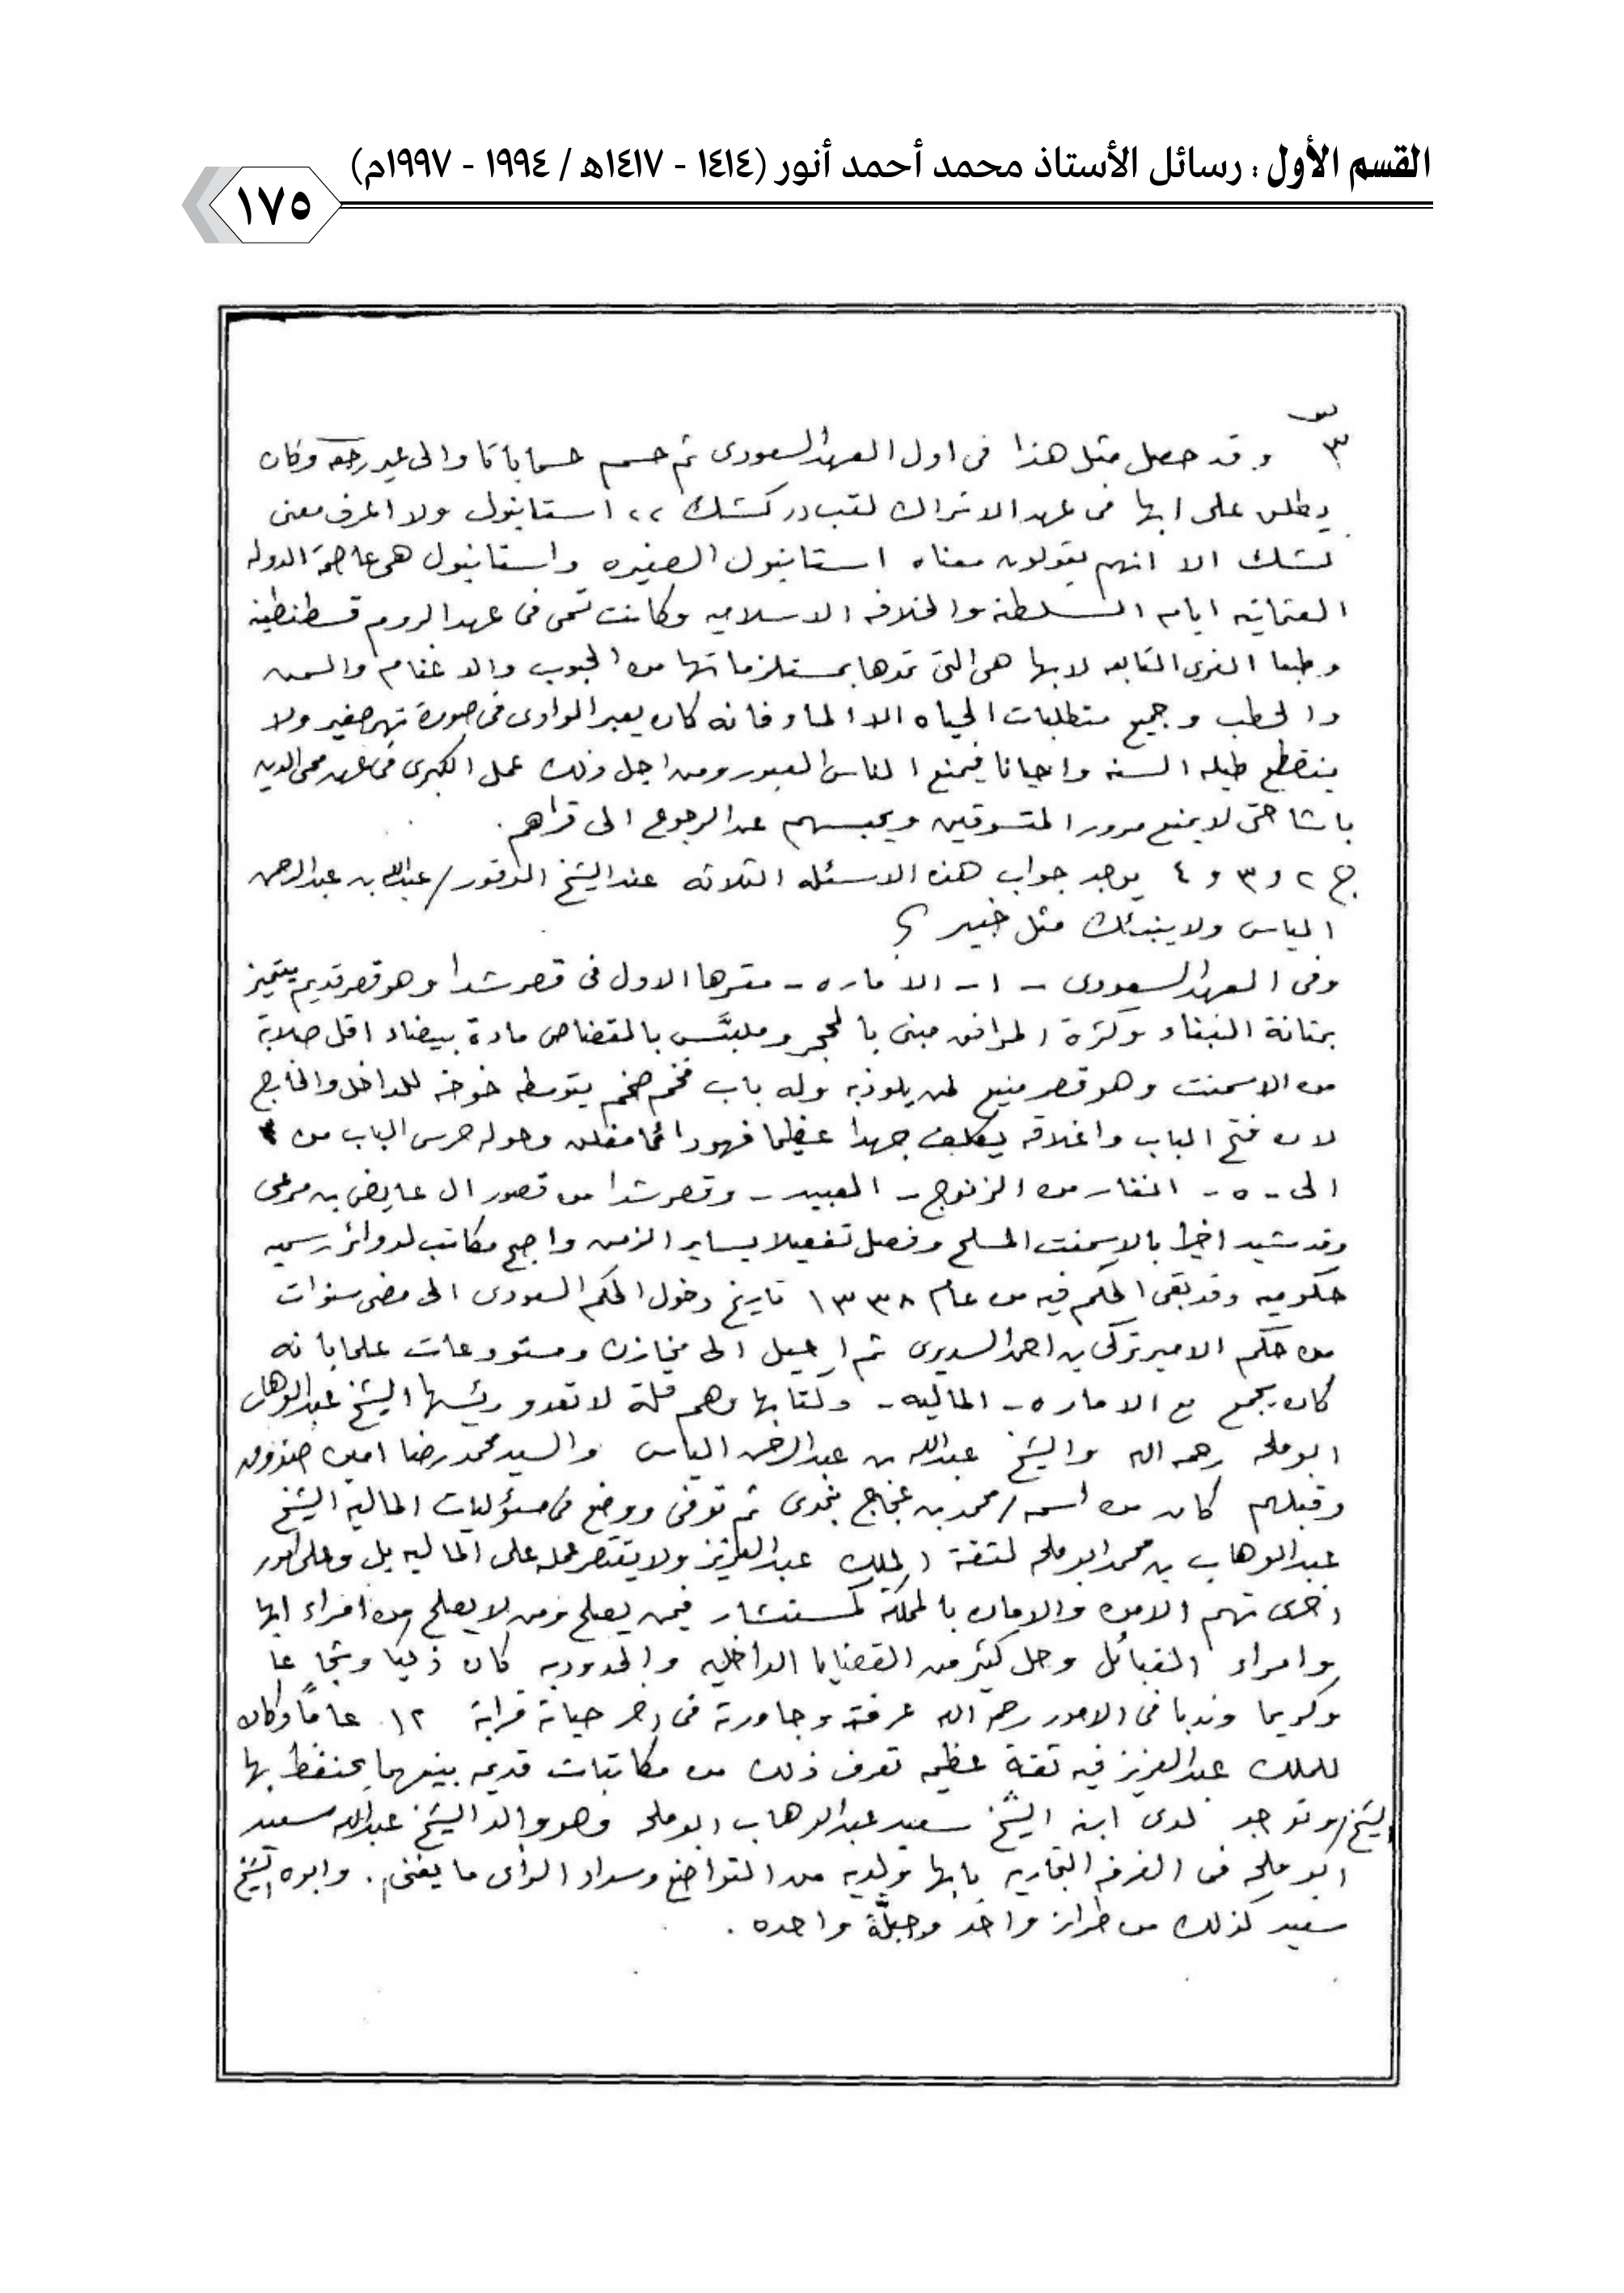 القسم الأول : رسائل الأستاذ محمد أحمد أنور (١٤١٤ - ١٤١٧هـ / ١٩٩٤ - ١٩٩٧م)
١٧٥
ص
٣
وقد حصل مثل هذا فى اول العهد السعودى ثم حسم حسابا باتا والى غير رجعه وكان
يطلق على ابها فى عهد الاتراك لقب ،، كشك ،، استانبول ولا اعرف معنى
كشك الا انهم يقولون معناه استانبول الصغيره واستانبول هى عاصمة الدوله
العثمانيه ايام السلطنه والخلافه الاسلاميه وكانت تسمى فى عهد الروم قسطنطينه
وطبعا القرى التابعه لابها هى التى تمدها بمستلزماتها من الحبوب والاغنام والسمن
والحطب وجميع متطلبات الحياه الا الماء فانه كان يعبر الوادى فى صورة نهر صغير ولا
ينقطع طيله السنه واحيانا فيمنع الناس العبور ومن اجل ذلك عمل الكبرى فى عهد محى الدين
باشا حتى لا يمنع مرور المتسوقين ويحبسهم عن الرجوع الى قراهم .
ج ٢ و ٣ و ٤ يوجد جواب هذه الاسئله الثلاثه عند الشيخ الوقور / عبدالله بن عبدالرحمن
الياس ولا ينبئك مثل خبير ؟
وفى العهد السعودى - ١ - الاماره - مقرها الاول فى قصر شدا وهو قصر قديم يتميز
بمتانة البناء وكثرة المرافق مبنى بالحجر وملبَّس بالقضاض مادة بيضاء اقل صلابة
من الاسمنت وهو قصر منيع لمن يلوذ به وله باب فخم ضخم يتوسطه خوخه للداخل والخارج
لان فتح الباب واغلاقه يكلف جهدا عظيما فهو دائما مغلق وحوله حرس الباب من ٤
الى - ٥ - انفار من الزنوج - العبيد - وقصر شدا من قصور ال عايض بن مرعى
وقد شيد اخيرا بالاسمنت المسلح وفصل تفصيلا يساير الزمن واصبح مكاتب لدوائر رسميه
حكوميه وقد بقى الحكم فيه من عام ١٣٣٨ تاريخ دخول الحكم السعودى الى مضى سنوات
من حكم الامير تركى بن احمد السديرى ثم احيل الى مخازن ومستودعات علما بانه
كان يجمع مع الاماره - الماليه - وكتابها وهم قلة لا تعدو رئيسها الشيخ عبدالوهاب
ابوملحه رحمه الله والشيخ عبدالله بن عبدالرحمن الياس والسيد محمد رضا امين صندوق
وقبلهم كان من اسمه / محمد بن عجاج نجدى ثم توفى ووضع فى مسؤليات المالية الشيخ
عبدالوهاب بن محمد ابوملحه لثقة الملك عبدالعزيز ولا يقتصر عمله على الماليه بل وعلى امور
اخرى تهم الامن والامان بالمملكة كمستشار فيمن يصلح ومن لا يصلح من امراء ابها
وامراء القبائل وحل كثير من القضايا الداخليه والحدوديه كان ذكيا وشجاعا
وكريما وندبا فى الامور رحمه الله عرفته وجاورته فى اخر حياته قرابة ١٢ عاماً وكان
للملك عبدالعزيز فيه ثقة عظيمه تعرف ذلك من مكاتبات قديمه بينهما يحتفظ بها
الشيخ / وتوجد لدى ابنه الشيخ سعيد عبدالوهاب ابوملحه وهو والد الشيخ عبدالله سعيد
ابو ملحه فى الغرفه التجاريه بابها ولديه من التواضع وسداد الرأى ما يغنى . وابوه الشيخ
سعيد كذلك من طراز واحد وجبلَّة واحده .